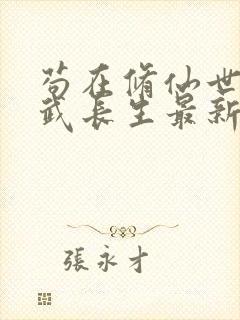 苟在脩仙世
武長生最新
張永才